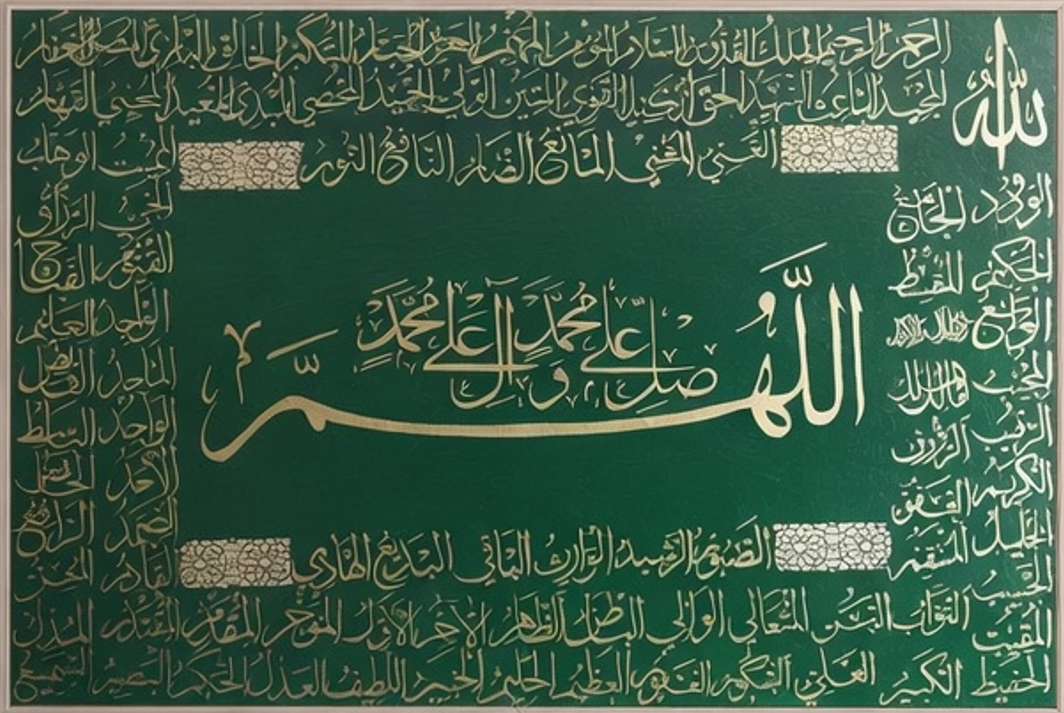 الله
الرحمن الرحيم الملك القدوس السلام المؤمن المهيمن العزيز الجبار المتكبر الخالق البارئ المصور الغفار
المجيد الباعث الشهيد الحق الوكيل القوي المتين الولي الحميد المحصي المبدئ المعيد المحيي القهار
الغني المغني المانع الضار النافع النور المميت الوهاب
الودود الجامع الحي الرزاق
الحكيم المقسط القيوم الفتاح
اللَّهُمَّ
صَلِّ عَلَى مُحَمَّدٍ وَآلِ عَلَى مُحَمَّد
الواسع الواجد العليم
المجيب مالك الملك الماجد القابض
الرقيب الرؤوف الواحد الباسط
الكريم العفو الأحد الخافض
الجليل المنتقم الصمد الرافع
الصبور الرشيد الوارث الباقي البديع الهادي القادر المعز
الحسيب
المقيت التواب البر المتعالي الوالي الباطن الظاهر الآخر الأول المؤخر المقدم المقتدر المذل
الحفيظ الكبير العلي الشكور الغفور العظيم الحليم الخبير اللطيف العدل الحكم البصير السميع